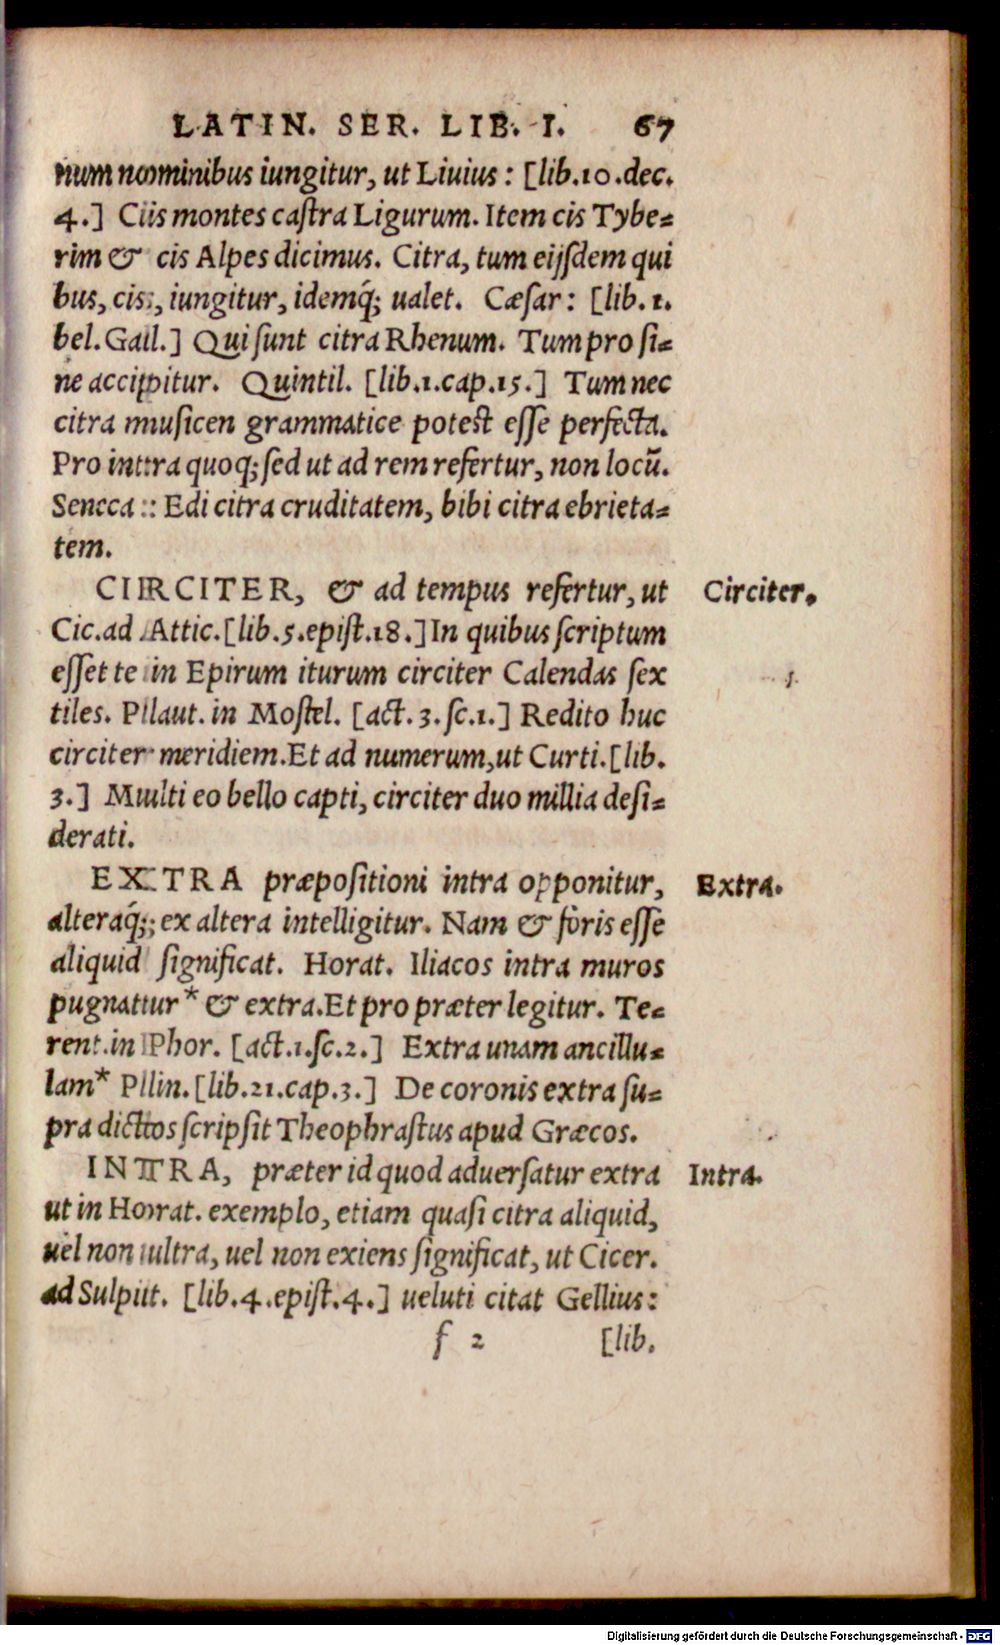 LATIN. SER. LIB. I. 67
num nominibus iungitur, ut Liuius : [lib.10.dec.
4.] Cis montes castra Ligurum. Item cis Tybe=
rim & cis Alpes dicimus. Citra, tum eijsdem qui
bus, cis, iungitur, idemq́; ualet. Cæsar : [lib. 1.
bel. Gall.] Qui sunt citra Rhenum. Tum pro si=
ne accipitur. Quintil. [lib.1.cap.15.] Tum nec
citra musicen grammatice potest esse perfecta.
Pro intra quoq; sed ut ad rem refertur, non locū.
Seneca : Edi citra cruditatem, bibi citra ebrieta=
tem.
CIRCITER, & ad tempus refertur, ut
Circiter.
Cic. ad Attic. [lib.5.epist.18.] In quibus scriptum
esset te in Epirum iturum circiter Calendas sex
tiles. Plaut. in Mostel. [act. 3. sc.1.] Redito huc
circiter meridiem. Et ad numerum, ut Curti. [lib.
3.] Multi eo bello capti, circiter duo millia desi=
derati.
EXTRA præpositioni intra opponitur,
Extra.
alteraq́; ex altera intelligitur. Nam & foris esse
aliquid significat. Horat. Iliacos intra muros
pugnatur * & extra. Et pro præter legitur. Te=
rent. in Phor. [act.1.sc.2.] Extra unam ancillu=
lam* Plin. [lib.21.cap.3.] De coronis extra su=
pra dictos scripsit Theophrastus apud Græcos.
INTRA, præter id quod aduersatur extra
Intra.
ut in Horat. exemplo, etiam quasi citra aliquid,
uel non ultra, uel non exiens significat, ut Cicer.
ad Sulpit. [lib.4.epist.4.] ueluti citat Gellius:
f 2 [lib.
Digitalisierung gefördert durch die Deutsche Forschungsgemeinschaft - DFG